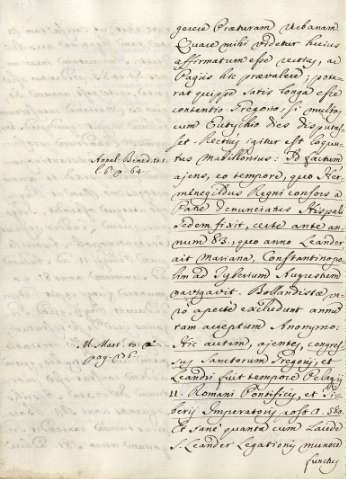 gerere Præturam Urbanam
Quare mihi videtur huius
affirmatum esse rectius, ac
Pagius hic prævalere; pote-
rat quippe satis longa esse
contentio Gregorio, si multos
cum Eutychio dies disputas-
set. Rectus igitur est loquu-
tus Mabillonius: Id factum
ajens, eo tempore, quo Her-
menegildus Regni consors a
Patre denunciatus Hispali
sedem fixit, certe ante an-
num 83., quo anno Leander
ait Mariana, Constantinopo-
lim ad Tyberium Augustum
navigavit. Bollandistæ ve-
ro aperte excludunt annum
tam acceptum Anonymo:
Hic autem, ajentes, congres-
sus Sanctorum Gregorii, et
Leandri fuit tempore Pelagii
II. Romani Pontificis, et Ti-
berii Imperatoris post a. 580.
Et sane quanta cum laude
S. Leander Legationis munere
functus
Annal. Bened. to. 1.
l. 6. p. 64
M. Mart. to. 2
pag. 276.